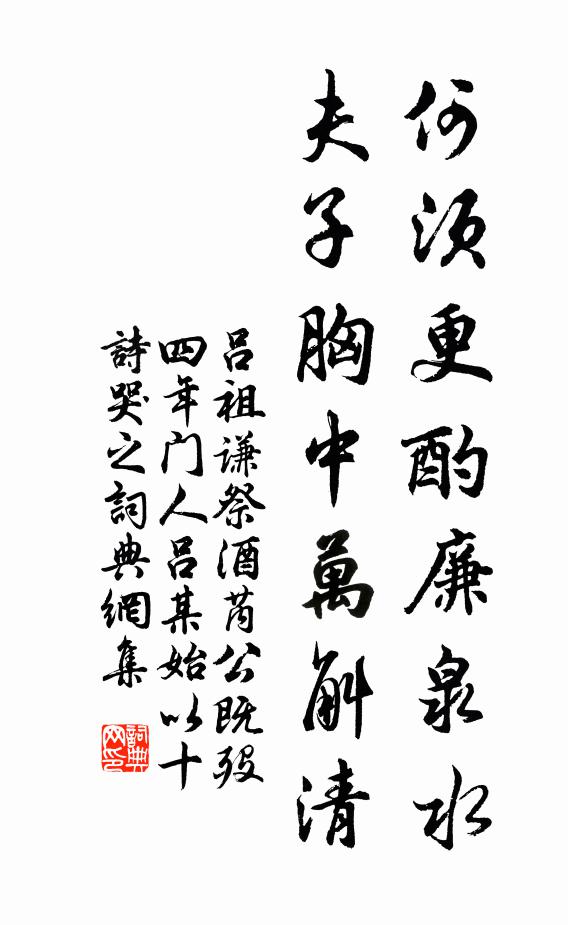 何须更酌廉泉水
夫子胸中萬斛清
吕祖谦祭酒芮公既殁
四年门人吕某始以十
詩哭之詞典網集
詞典
网印